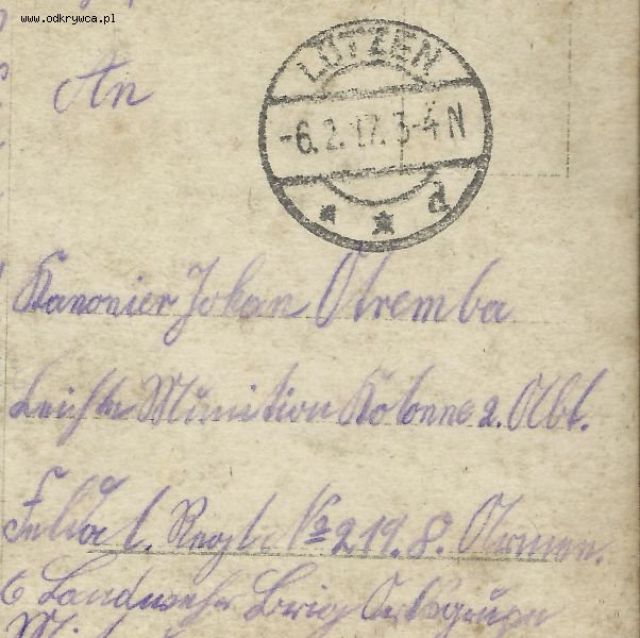 www.odkrywca.pl
LÖTZEN
-6.2.17.3-4N
* * d
An
Kanonier Johan Otremba
Leichte Munition Kolonne 2. Abt.
Feldart. Regt. No 219. 8. Armee.
6 Landwehr